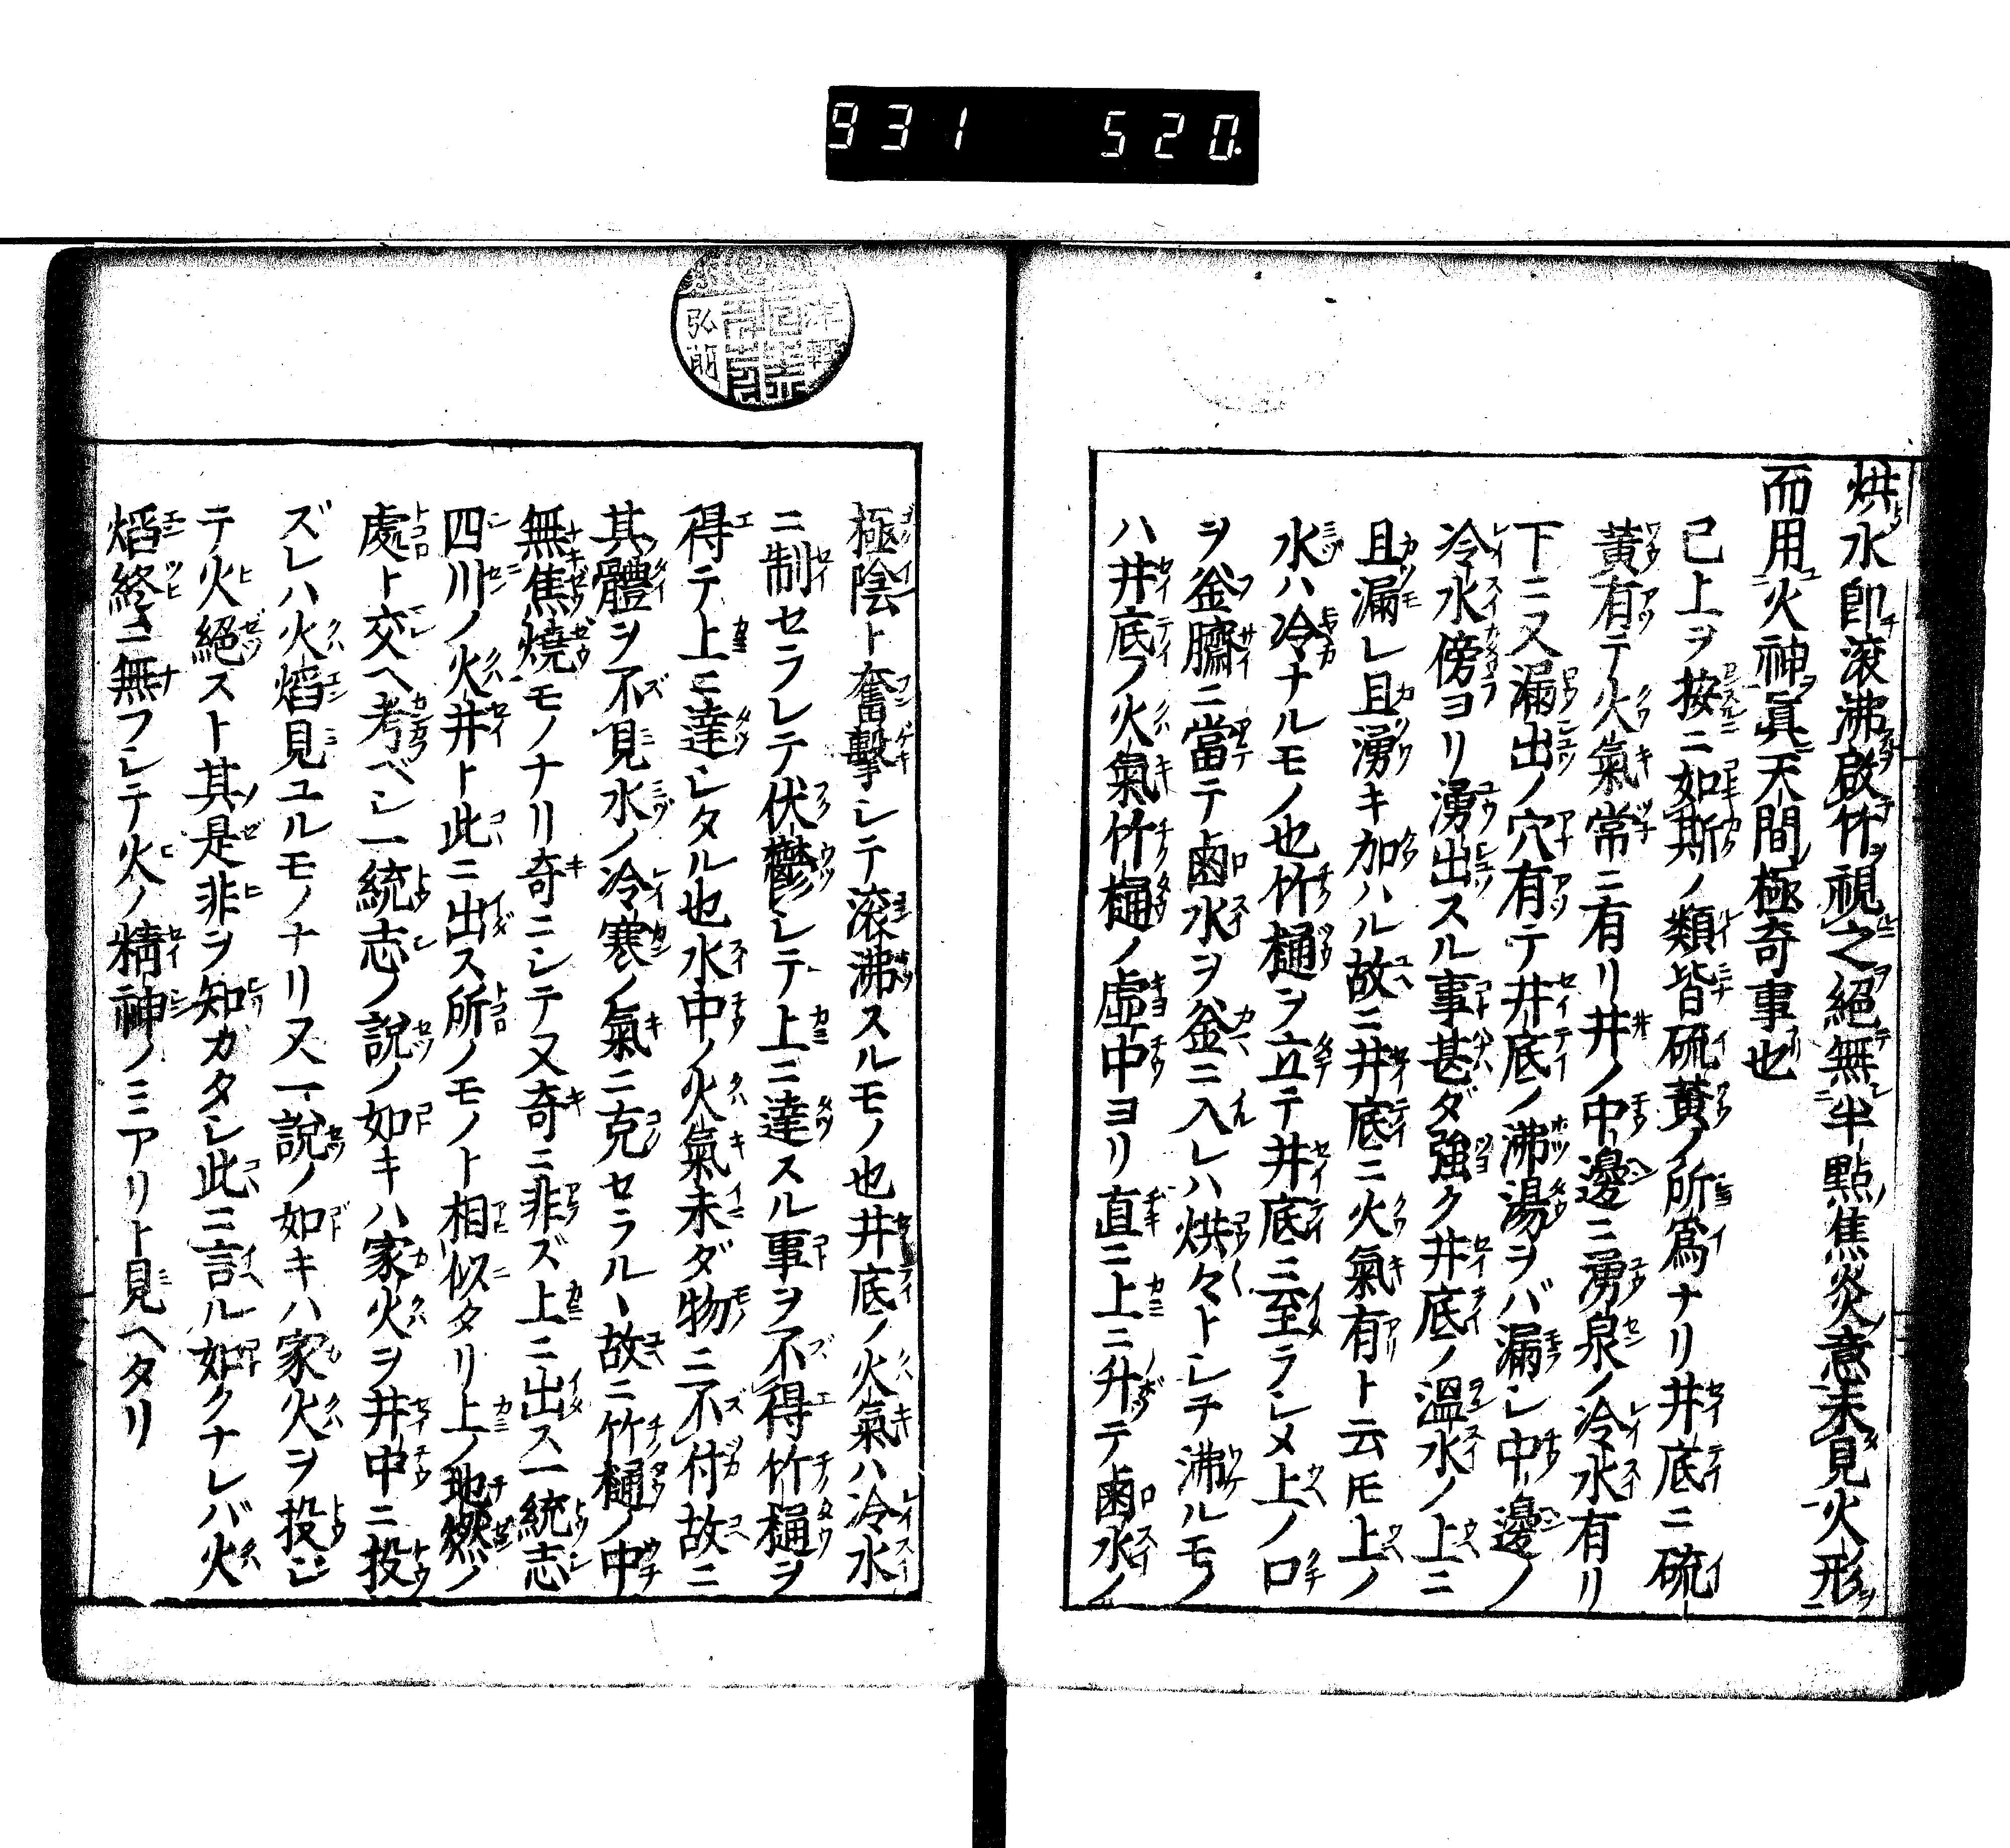 931 520
烘水卽滾沸啟竹視之絕無半點焦炎意未見火形
而用火神眞天間極奇事也
已上ヲ按ニ如斯ノ類皆硫黄ノ所爲ナリ井底ニ硫
黄有テ火氣常ニ有リ井ノ中邊ニ湧泉ノ冷水有リ
下ニ又漏出ノ穴有テ井底ノ沸湯ヲバ漏シ中邊ノ
冷水傍ヨリ湧出スル事甚ダ強ク井底ノ溫水ノ上ニ
且漏レ且湧キ加ハル故ニ井底ニ火氣有ト云圧上ノ
水ハ冷ナルモノ也竹樋ヲ立テ井底ニ至ラシメ上ノ口
ヲ釜臍ニ當テ鹵水ヲ釜ニ入レハ烘々トシテ沸ルモノ
ハ井底ノ火氣竹樋ノ虛中ヨリ直ニ上ニ升テ鹵水ノ
極陰ト奮擊シテ滾沸スルモノ也井底ノ火氣ハ冷水
ニ制セラレテ伏鬱シテ上ニ達スル事ヲ不得竹樋ヲ
得テ上ニ達シタル也水中ノ火氣未ダ物ニ不付故ニ
其體ヲ不見水ノ冷寒ノ氣ニ克セラル丶故ニ竹樋ノ中
無焦燒モノナリ奇ニシテ又奇ニ非ズ上ニ出ス一統志
四川ノ火井ト此ニ出ス所ノモノト相似タリ上ノ地燃ノ
處ト交ヘ考ベシ一統志ノ說ノ如キハ家火ヲ井中ニ投
ズレハ火熖見ユルモノナリ又一說ノ如キハ家火ヲ投シ
テ火絕スト其是非ヲ知カタシ此ニ言ル如クナレバ火
熖終ニ無フシテ火ノ精神ノミアリト見ヘタリ
弘前